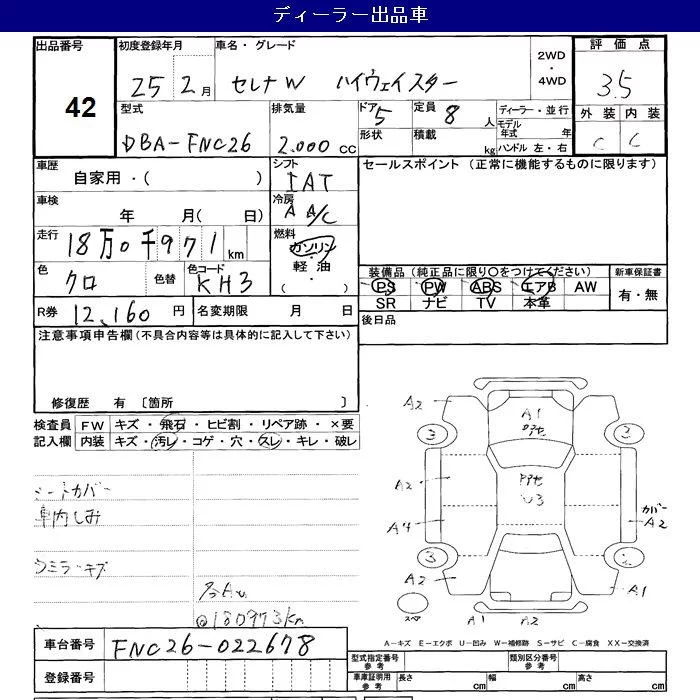 ディーラー出品車
出品番号 42
初度登録年月 25 2月
車名・グレード セレナW ハイウェイスター
2WD・4WD
評価点 3.5
型式 DBA-FNC26
排気量 2.000 cc
ドア 5 定員 8 人
形状 積載 kg
ディーラー・並行
モデル年式 年
ハンドル 左・右
外装 内装
C C
車歴 自家用・( )
シフト IAT
セールスポイント (正常に機能するものに限ります)
車検 年 月( 日)
冷房 A A/C
走行 18万0千971km
燃料 ガソリン・軽油・( )
色 クロ 色替 色コード KH3
装備品 (純正品に限り〇をつけてください) 新車保証書
PS PW ABS エアB AW 有・無
SR ナビ TV 本革
R券 12,160円 名変期限 月 日
後日品
注意事項申告欄(不具合内容等は具体的に記入して下さい)
修復歴 有 〔箇所 〕
検査員 FW キズ・飛石・ヒビ割・リペア跡・×要
記入欄 内装 キズ・汚レ・コゲ・穴・スレ・キレ・破レ
シートカバー
車内しみ
ウミラーキズ
@180973km
A2 A1
3 2
A2 U3
A4 カバー A2
3
A2 A1
スペア A1 A2
A-キズ E-エクボ U-凹み W-補修跡 S-サビ C-腐食 XX-交換済
車台番号 FNC26-022678
型式指定番号参考 類別区分番号参考
登録番号
車庫証明用参考 長さ cm 幅 cm 高さ cm